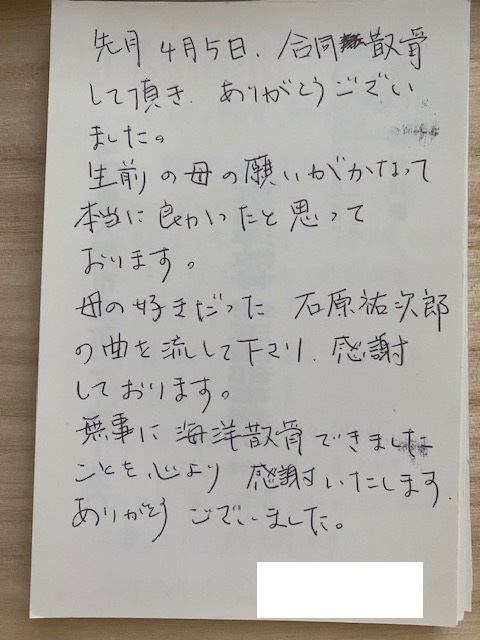 先月 4月5日、合同散骨
して頂き、ありがとうござい
ました。
生前の母の願いがかなって
本当に良かったと思って
おります。
母の好きだった 石原祐次郎
の曲を流して下さり、感謝
しております。
無事に海洋散骨できました
ことを心より 感謝いたします。
ありがとう ございました。